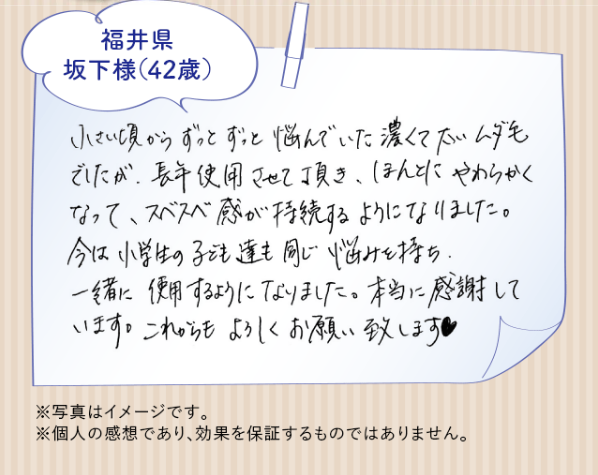 福井県
坂下様(42歳)
小さい頃からずっとずっと悩んでいた濃くて太いムダ毛
でしたが、長年使用させて頂き、ほんとにやわらかく
なって、スベスベ感が持続するようになりました。
今は小学生の子ども達も同じ悩みを持ち、
一緒に使用するようになりました。本当に感謝して
います。これからもよろしくお願い致します♥
※写真はイメージです。
※個人の感想であり、効果を保証するものではありません。